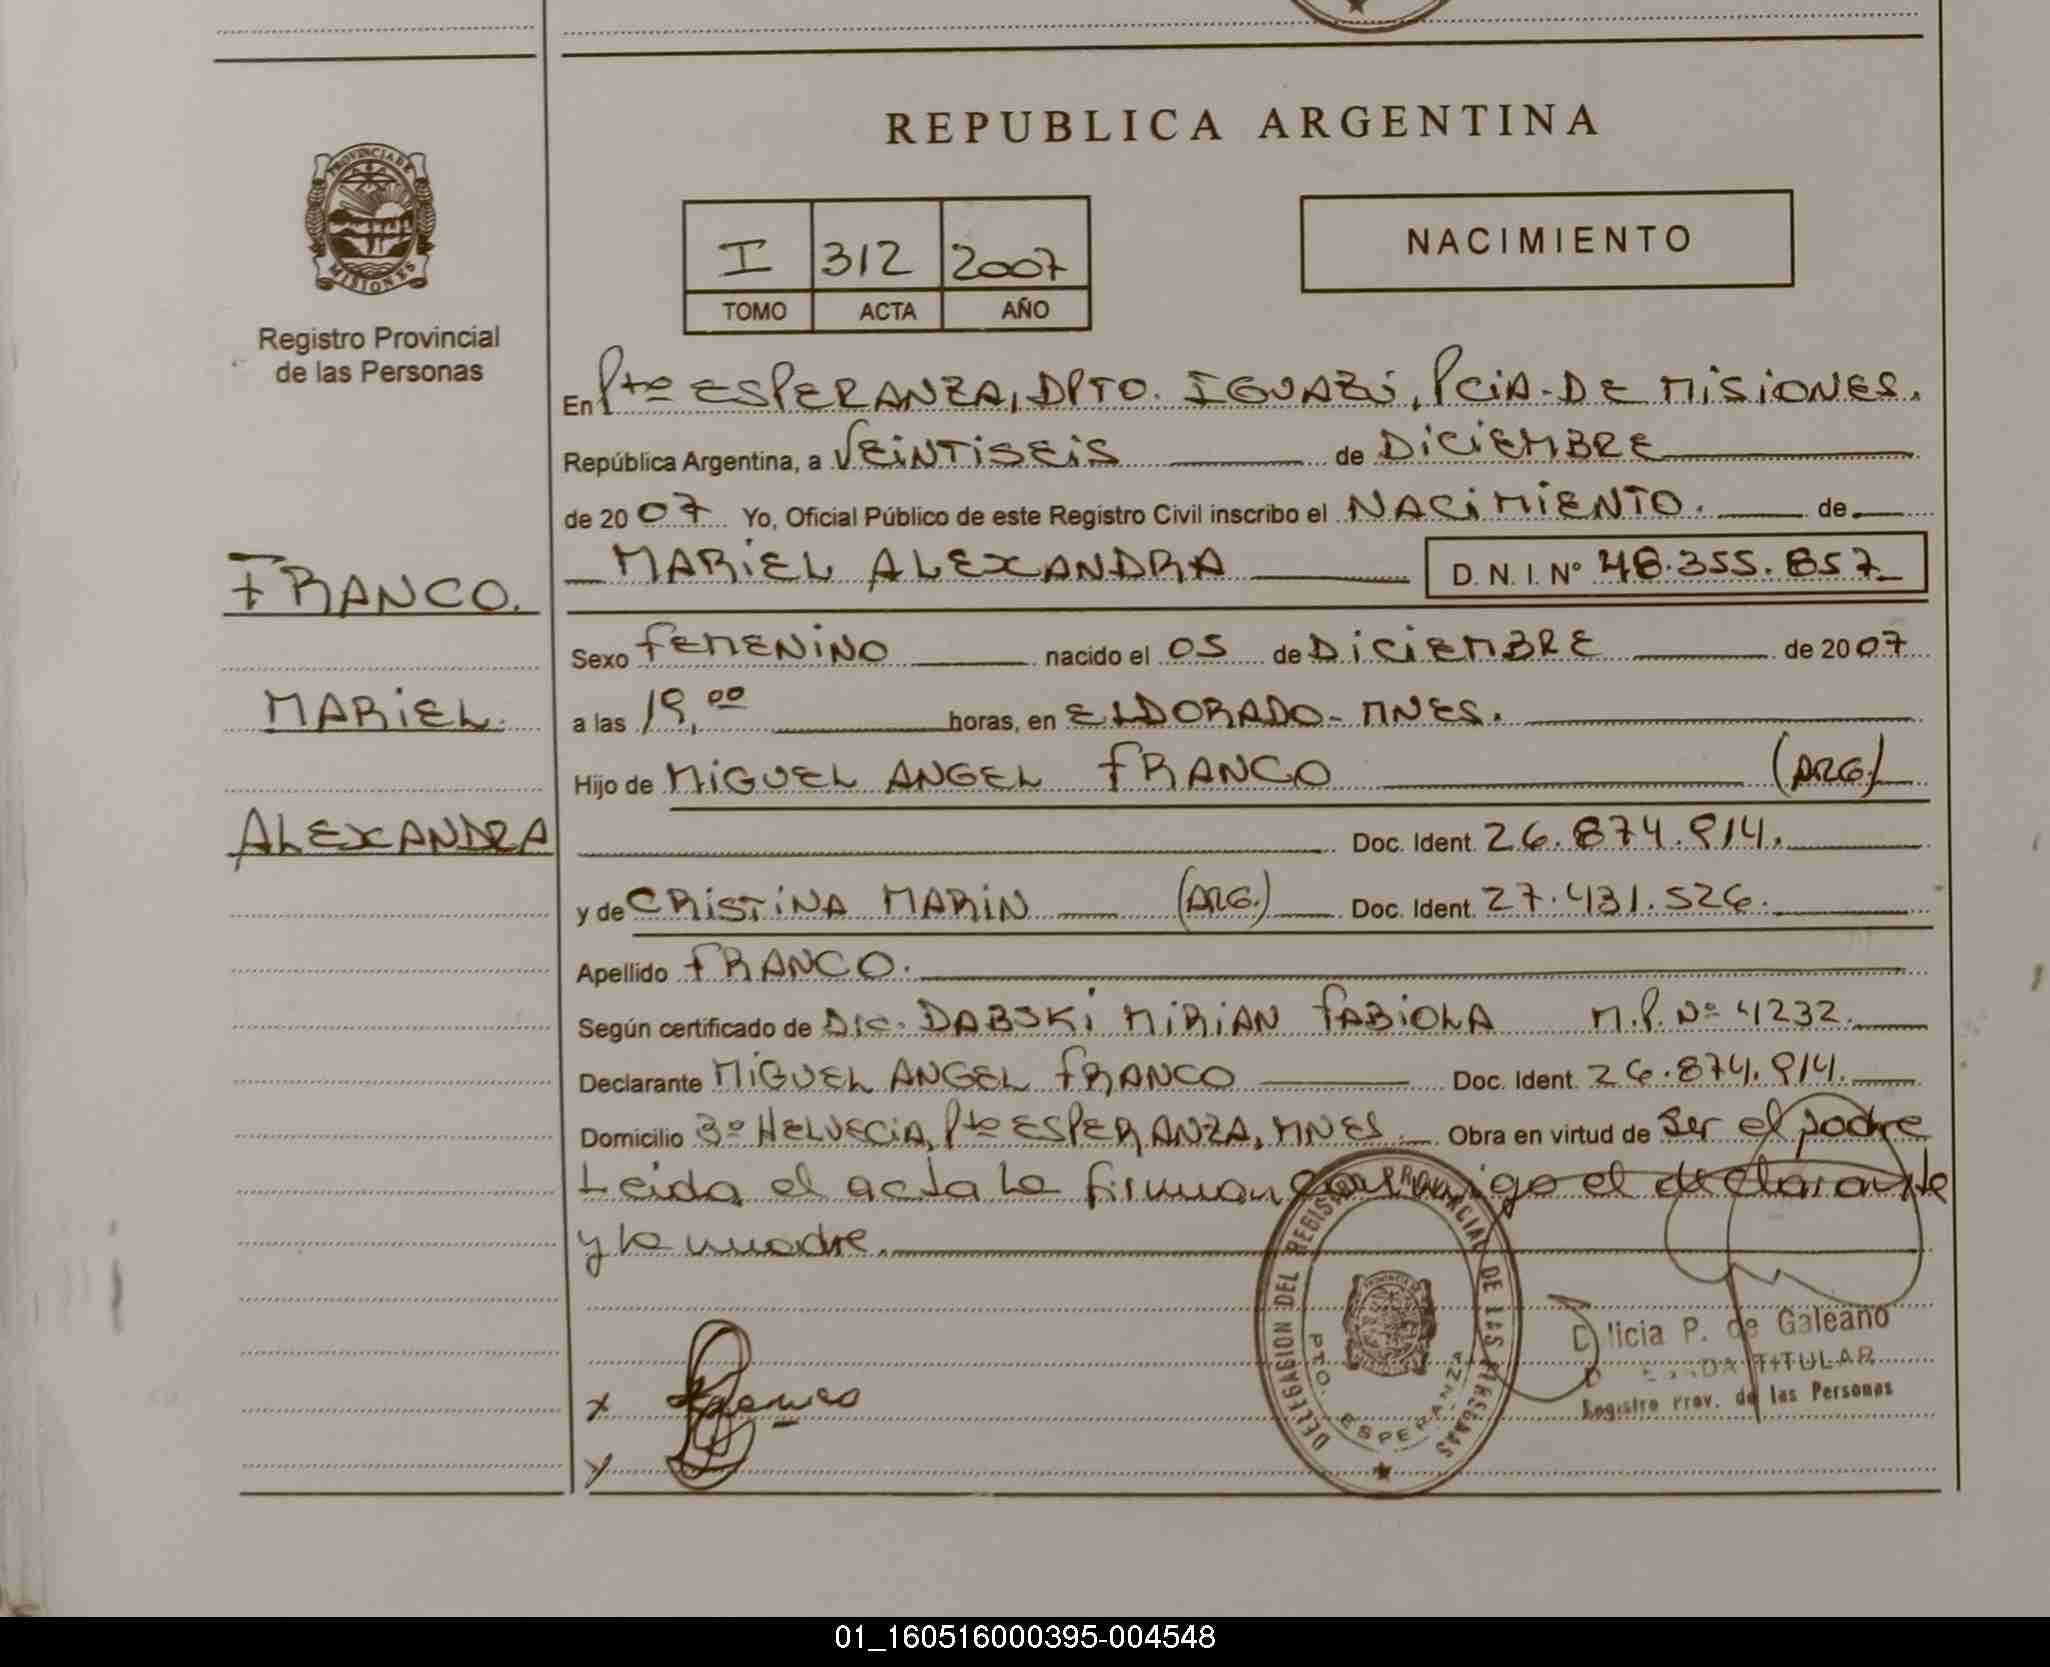 REPUBLICA ARGENTINA
PROVINCIA DE
MISIONES
Registro Provincial
de las Personas
I 312 2007
TOMO ACTA AÑO
NACIMIENTO
En Pto ESPERANZA, DPTO. IGUAZÚ, PCIA. DE MISIONES.
República Argentina, a VEINTISEIS de DICIEMBRE
de 2007 Yo, Oficial Público de este Registro Civil inscribo el NACIMIENTO. de
MARIEL ALEXANDRA D.N.I. Nº 48.355.857
FRANCO.
MARIEL.
ALEXANDRA
Sexo FEMENINO nacido el 05 de DICIEMBRE de 2007
a las 19,00 horas, en ELDORADO - MNES.
Hijo de MIGUEL ANGEL FRANCO (ARG.)
Doc. Ident. 26.874.914.
y de CRISTINA MARIN (ARG.) Doc. Ident. 27.431.526.
Apellido FRANCO.
Según certificado de DABSKI MIRIAN FABIOLA M.P. Nº 4232.
Declarante MIGUEL ANGEL FRANCO Doc. Ident. 26.874.914.
Domicilio Bº HELVECIA, Pto ESPERANZA, MNES. Obra en virtud de ser el padre
Leida el acta la firman conmigo el declarante
y la madre.
DELEGACION DEL REGISTRO PROVINCIAL DE LAS PERSONAS
PTO. ESPERANZA
licia P. de Galeano
TITULAR
Registro Prov. de las Personas
x
01_160516000395-004548